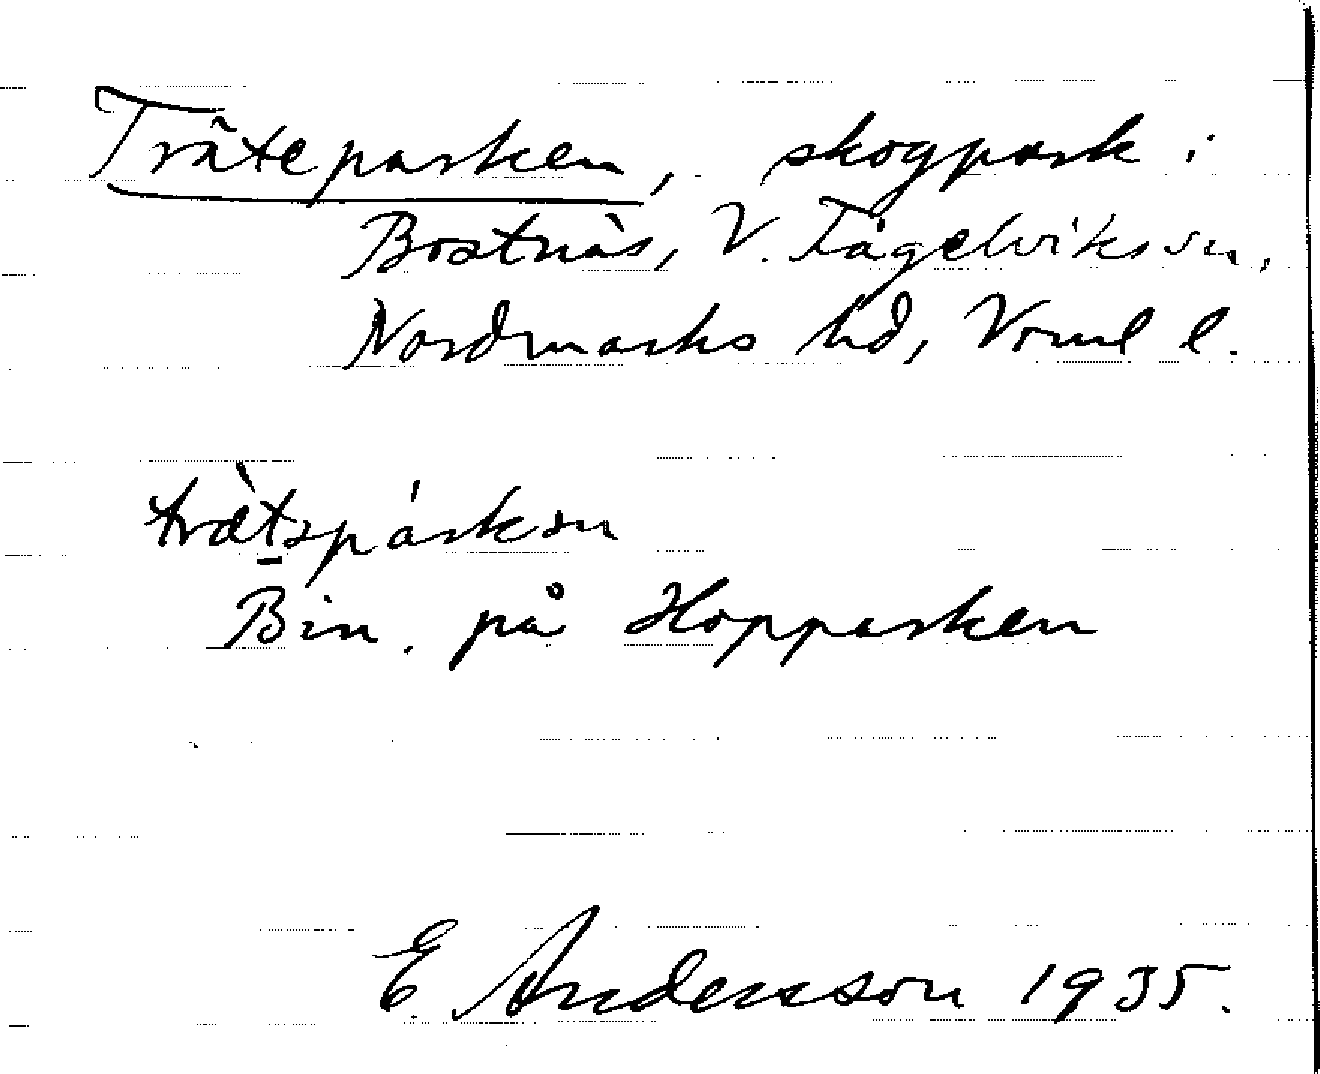 Träteparken, skogpark i
Bostnäs, V. Fågelviks sn,
Nordmarks hd, Vrml l.
trätspárkən
Bin. på Hopparken
E. Andersson 1935.